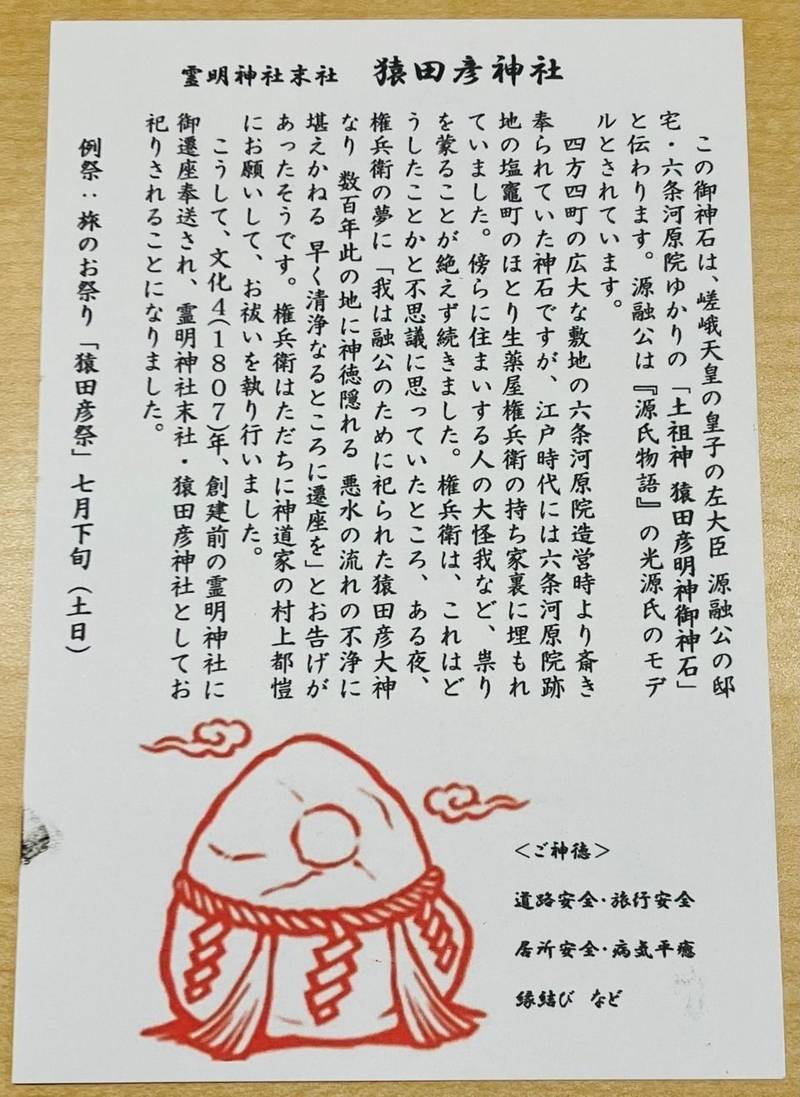 霊明神社末社　猿田彦神社
この御神石は、嵯峨天皇の皇子の左大臣 源融公の邸
宅・六条河原院ゆかりの「土祖神 猿田彦明神御神石」
と伝わります。源融公は『源氏物語』の光源氏のモデ
ルとされています。
四方四町の広大な敷地の六条河原院造営時より斎き
奉られていた神石ですが、江戸時代には六条河原院跡
地の塩竈町のほとり生薬屋権兵衛の持ち家裏に埋もれ
ていました。傍らに住まいする人の大怪我など、祟り
を蒙ることが絶えず続きました。権兵衛は、これはど
うしたことかと不思議に思っていたところ、ある夜、
権兵衛の夢に「我は融公のために祀られた猿田彦大神
なり 数百年此の地に神徳隠れる 悪水の流れの不浄に
堪えかねる 早く清浄なるところに遷座を」とお告げが
あったそうです。権兵衛はただちに神道家の村上都愷
にお願いして、お祓いを執り行いました。
こうして、文化4(1807)年、創建前の霊明神社に
御遷座奉送され、霊明神社末社・猿田彦神社としてお
祀りされることになりました。
例祭：旅のお祭り「猿田彦祭」七月下旬（土日）
＜ご神徳＞
道路安全・旅行安全
居所安全・病気平癒
縁結び など